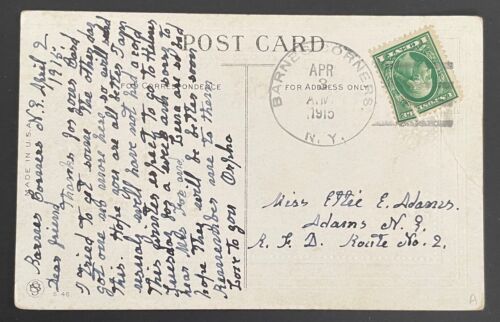 POST CARD
CORRESPONDENCE
FOR ADDRESS ONLY
MADE IN U.S.A.
S. 46
Barnes Corners N.Y. April 2
1915
Dear friend
Thanks for your Card
I tried to get some the other day
got one no more here so will send
this. Hope you are all better I am
usualy well have not had a cold
this winter expect to go to
Tuesday for a week am sorry to
hear Mrs Fox and are so bad
hope They will be better soon
Remember me to them
Love to you Orpha
BARNES CORNERS.
APR
3
A.M.
1915
N.Y.
Miss Effie E. Adams.
Adams N.Y.
R.F.D. Route No. 2.
A